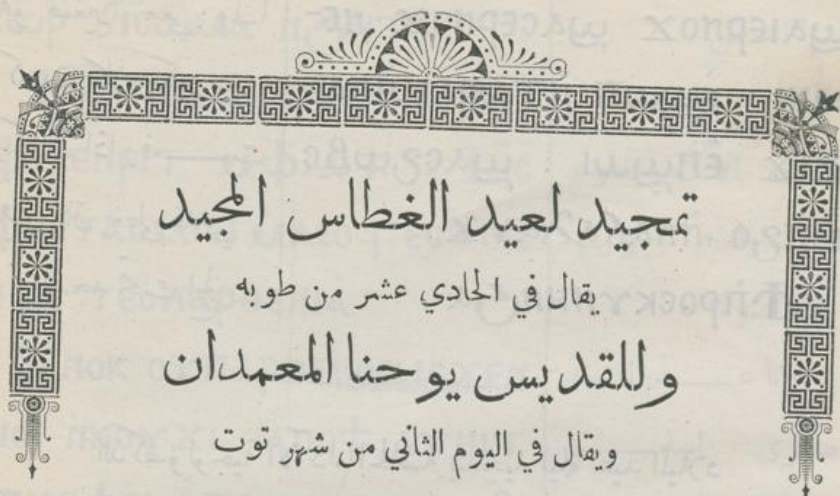 تمجيد لعيد الغطاس المجيد
يقال في الحادي عشر من طوبه
وللقديس يوحنا المعمدان
ويقال في اليوم الثاني من شهر توت